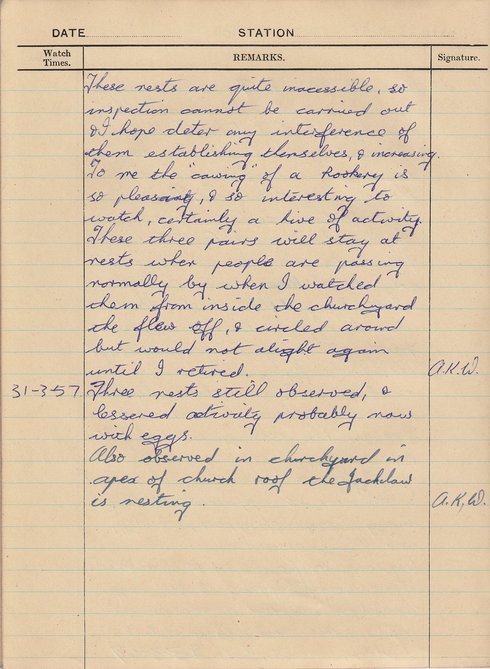 DATE STATION
Watch Times. REMARKS. Signature.
These nests are quite inaccessible, so
inspection cannot be carried out
& I hope deter any interference of
them establishing themselves, & increasing.
To me the "cawing" of a Rookery is
so pleasing, & so interesting to
watch, certainly a hive of activity.
These three pairs will stay at
nests when people are passing
normally by when I watched
them from inside the churchyard
the flew off, & circled around
but would not alight again
until I retired. A.K.W.
31-3-57 Three nests still observed, &
lessered activity probably now
with eggs.
Also observed in churchyard in
apex of church roof the Jackdaw
is nesting. A.K.W.